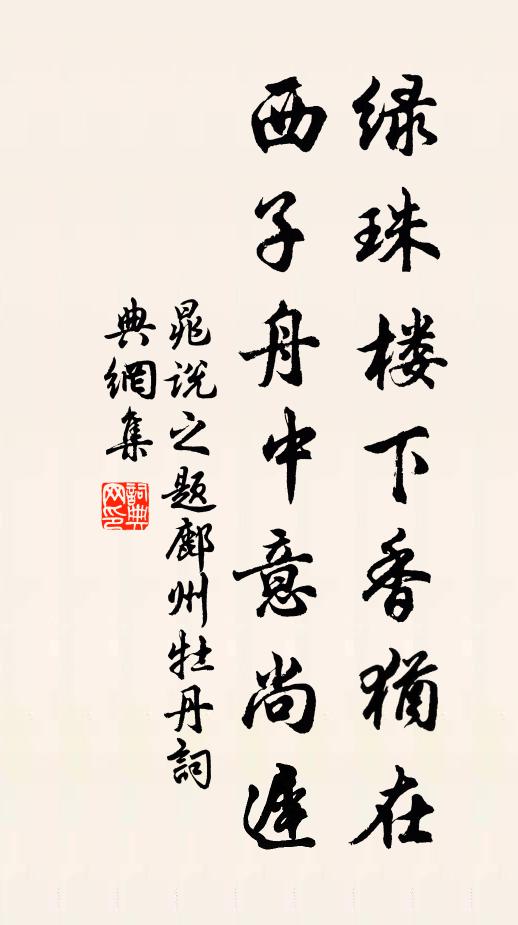 绿珠楼下香犹在
西子舟中意尚遲
晁说之题鄜州牡丹詞
典網集
詞典网印